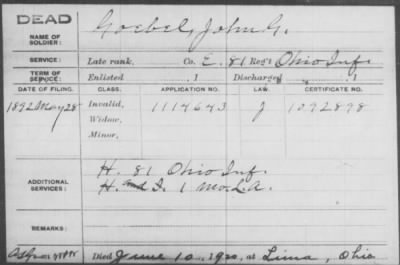 DEAD
NAME OF SOLDIER: Goebel, John G.
SERVICE: Late rank, Co. E. 81 Reg't Ohio Inf.
TERM OF SERVICE: Enlisted , 1 Discharged , 1
DATE OF FILING. CLASS. APPLICATION NO. LAW. CERTIFICATE NO.
1892 May 28 Invalid, 1114643 J 1092898
Widow,
Minor,
ADDITIONAL SERVICES: H. 81 Ohio Inf.
H. and I. 1 Mo. L.A.
REMARKS:
Died June 10, 1920, at Lima, Ohio